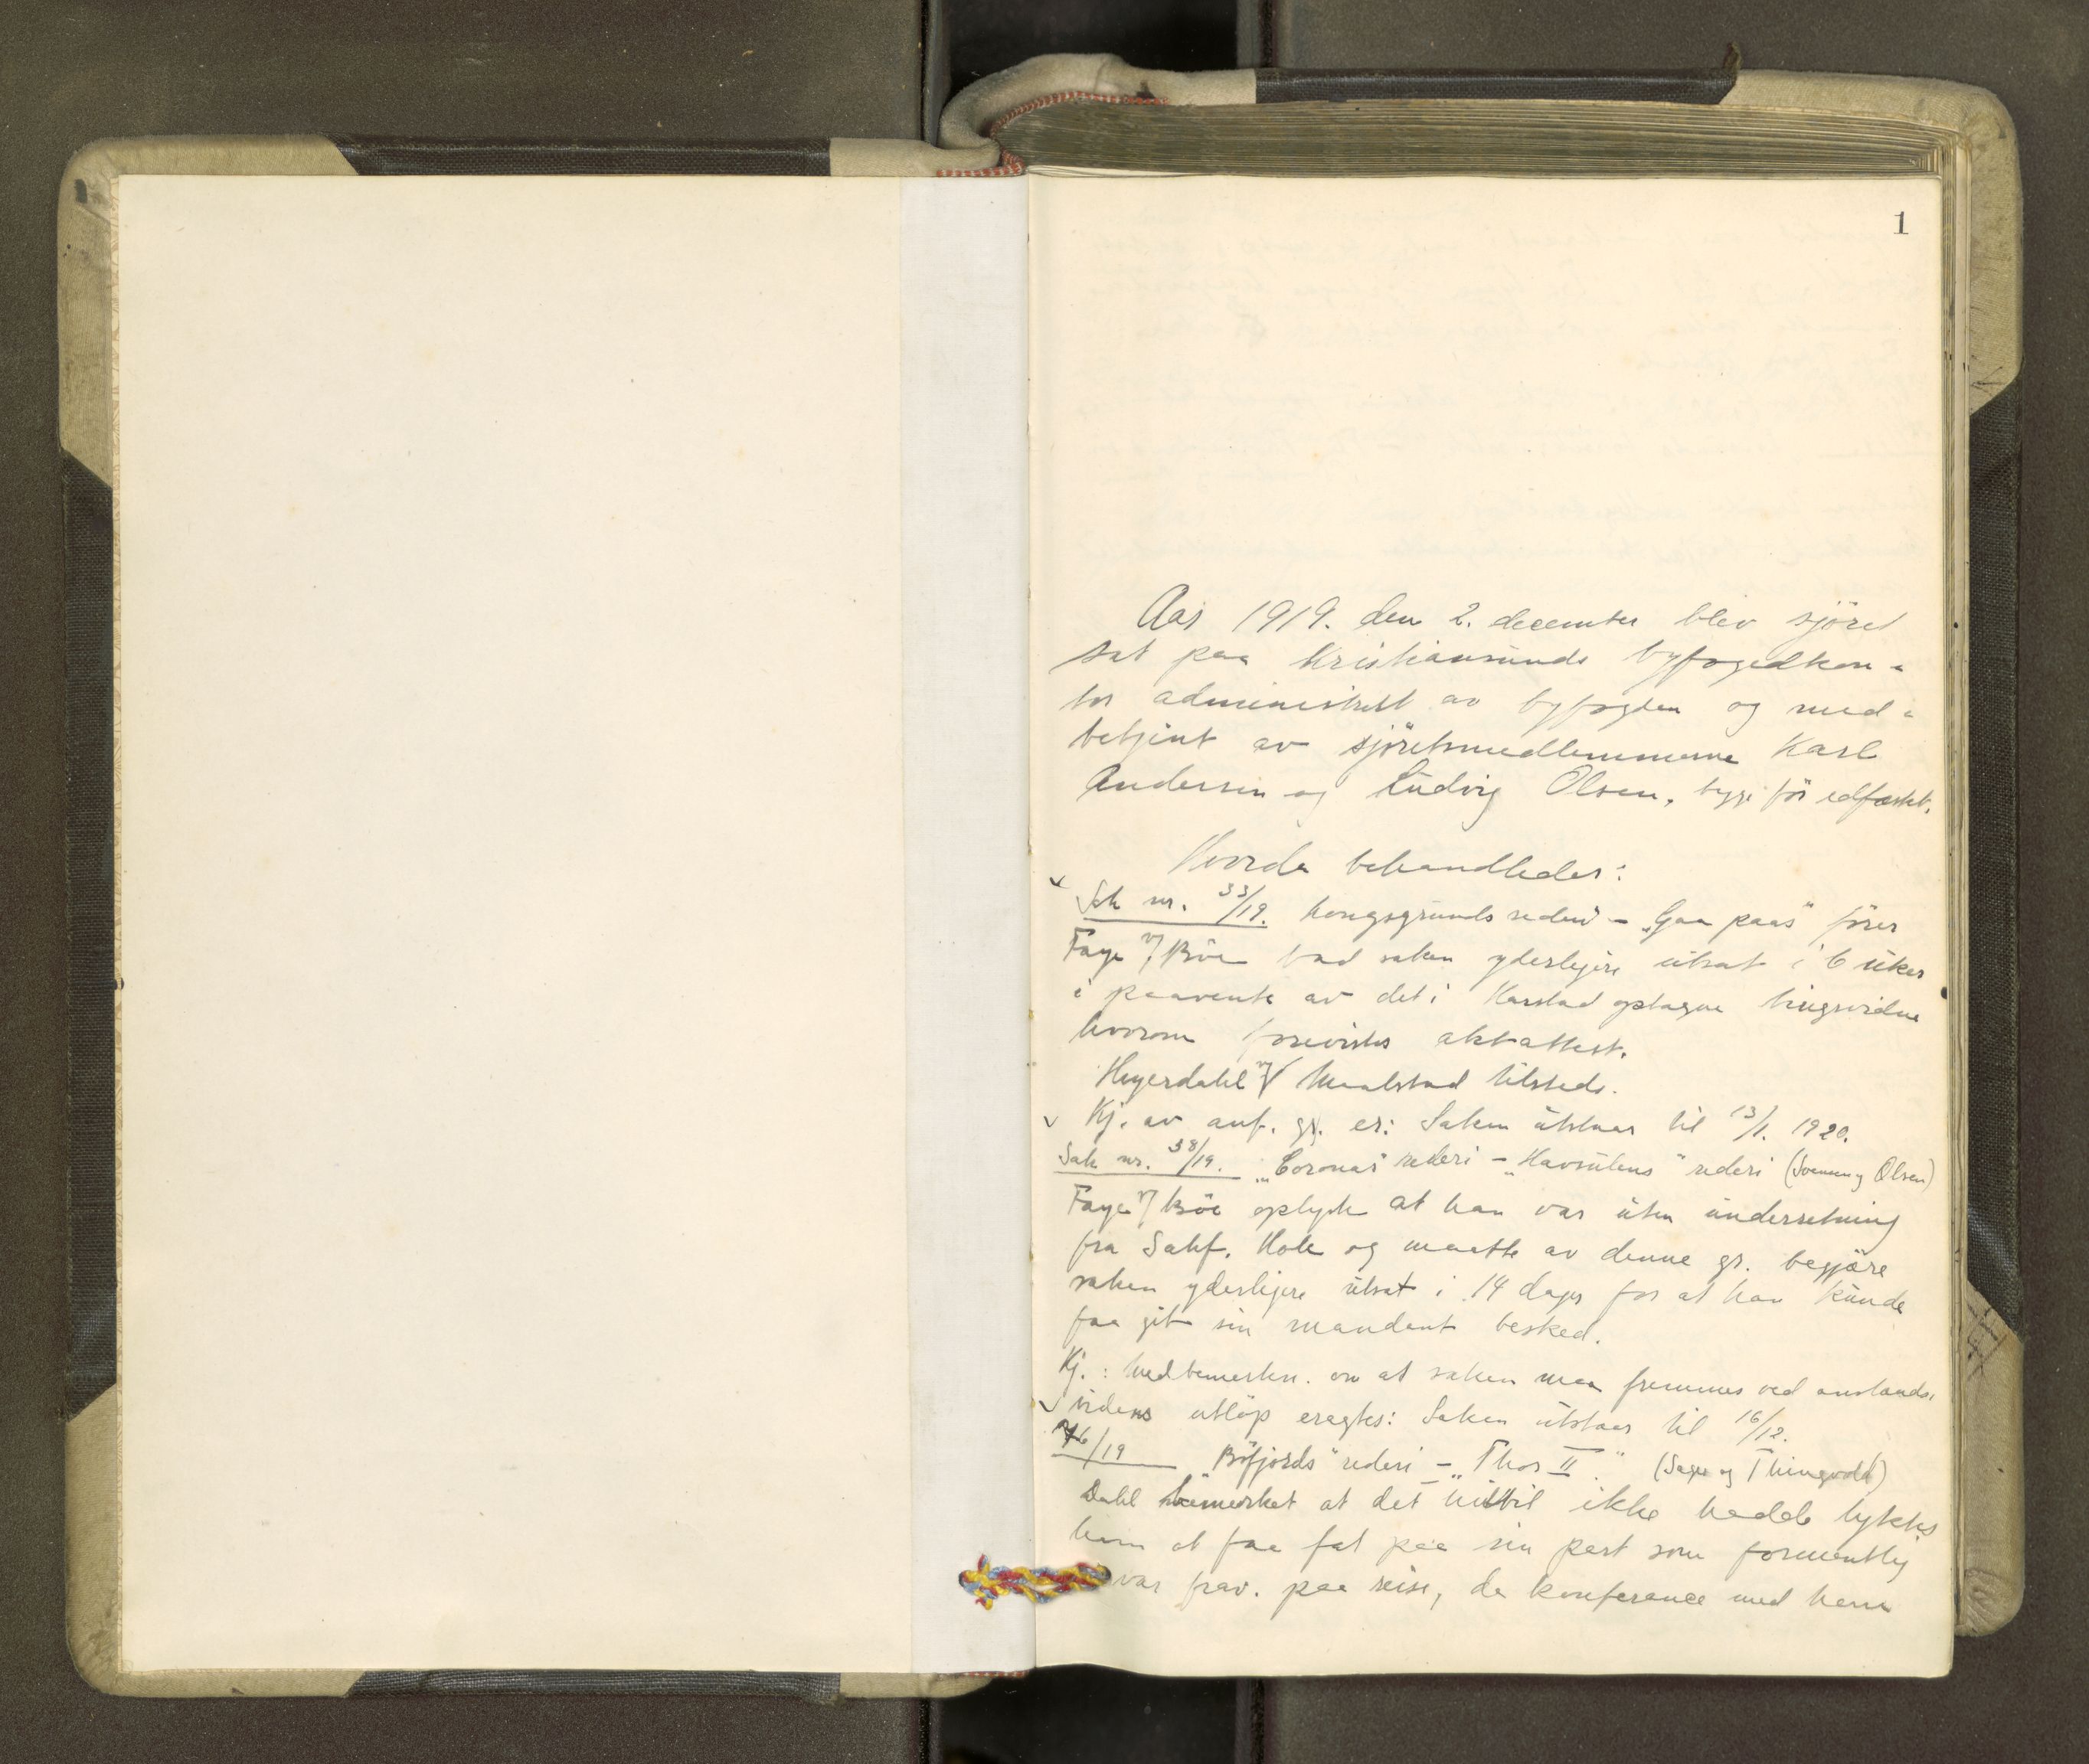 1
Aar 1919. den 2. december blev sjöret
sat paa Kristiansunds byfogedkon-
tor administrert av byfogden og med-
betjent av sjöretsmedlemmerne Karl
Andersen og Ludvig Olsen, begge för edfæstet.
Hvorda behandledes:
Sak nr. 33/19. Kongsgrunds rederi - "Gaa paas" fører
Faye v/ Böe bad saken yderligere utsat i 6 uker
i paavente av det i Harstad optagne tingsvidne
hvorom forevistes aktattest.
Heyerdahl v/ Maalstad tilstede.
Kj. av anf. gr. er: Saken utstaar til 13/1. 1920.
Sak nr. 38/19. "Coronas" rederi - "Havsulens" rederi (Olsen)
Faye v/ Böe oplyste at han var uten underretning
fra Sakf. Hole og maatte av denne gr. begjære
saken yderligere utsat i 14 dager for at han kunde
faa git sin mandant besked.
Kj.: Med bemerkn. om at saken maa fremmes ved anstands-
tidens utløp eragtes: Saken utstaar til 16/12.
46/19 "Böfjords" rederi - "Thor II." (og Thingvold)
Dahl bemerket at det hittil ikke hadde lykkes
ham at faa fat paa sin part som formentlig
var frav. paa reise, da konferance med ham